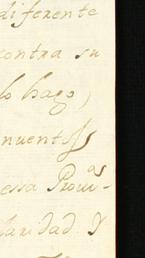 diferente
contra su
lo hago,
nuentos
essa Prou.as
laridad y